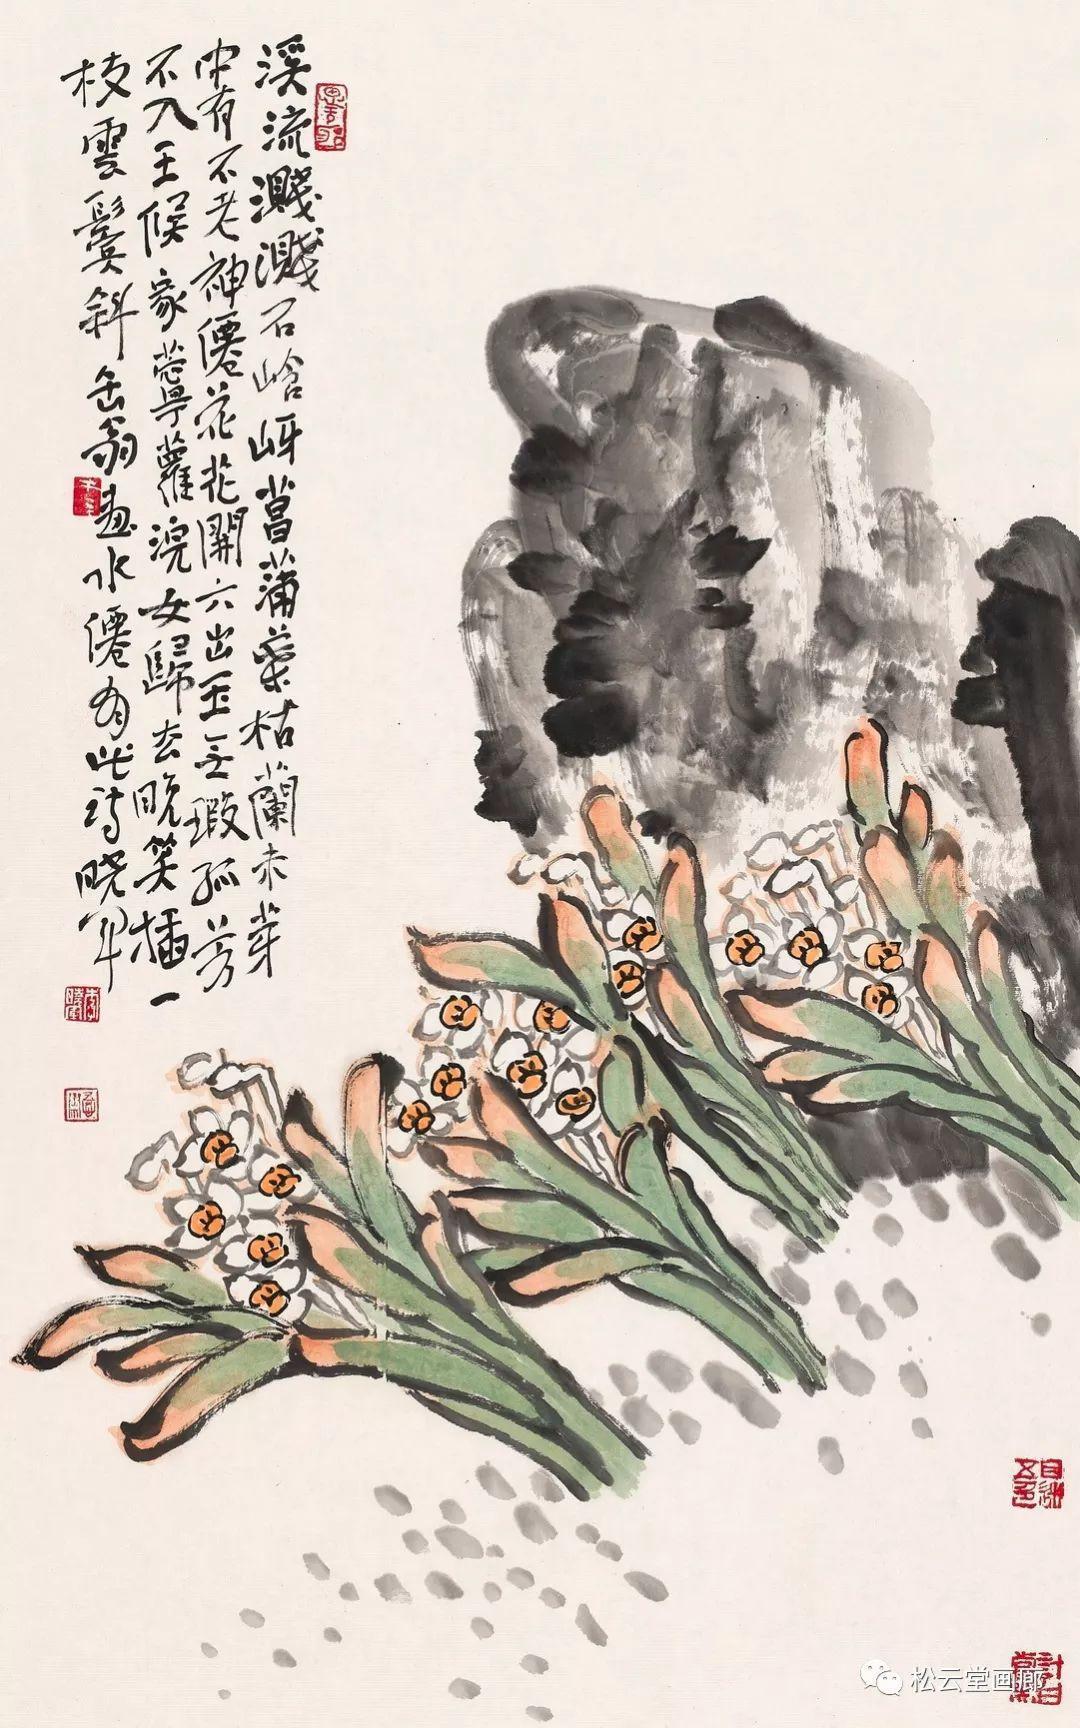 溪流濺濺石峆岈菖蒲葉枯蘭未芽
中有不老神僊花花開六出玉无瑕孤芳
不入王候家苧蘿浣女歸去晚笑插一
枝雲鬢斜缶翁画水僊有此詩晓军
松云堂画廊